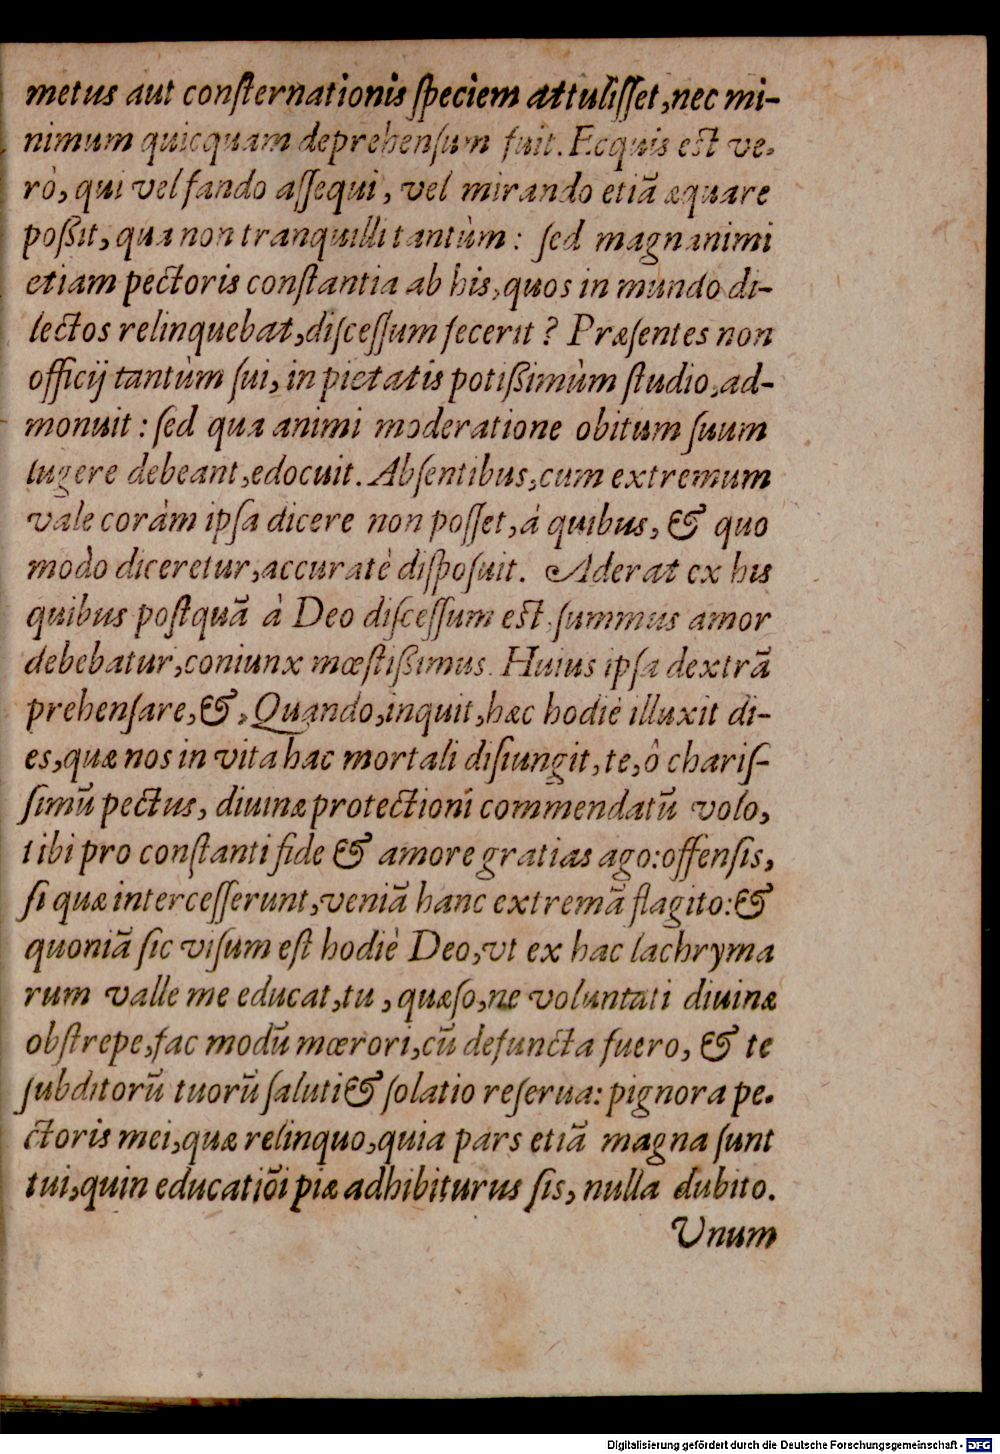 metus aut conſternationis ſpeciem attuliſſet, nec mi-
nimum quicquam deprehenſum fuit. Ecquis est ve-
rò, qui vel fando aſſequi, vel mirando etiā æquare
poßit, qua non tranquilli tantùm: ſed magnanimi
etiam pectoris conſtantia ab his, quos in mundo di-
lectos relinquebat, diſceſſum fecerit? Præſentes non
officij tantùm ſui, in pietatis potißimùm ſtudio, ad-
monuit: ſed qua animi moderatione obitum ſuum
lugere debeant, edocuit. Abſentibus, cum extremum
vale coràm ipſa dicere non poſſet, à quibus, & quo
modo diceretur, accuratè diſpoſuit. Aderat ex his
quibus poſtquā à Deo diſceſſum est, ſummus amor
debebatur, coniunx mœſtißimus. Huius ipſa dextrā
prehenſare, &, Quando, inquit, hæc hodiè illuxit di-
es, quæ nos in vita hac mortali diſiungit, te, ô chariſ-
ſimū pectus, diuinæ protectioni commendatū volo,
tibi pro conſtanti fide & amore gratias ago: offenſis,
ſi quæ interceſſerunt, veniā hanc extremā flagito: &
quoniā ſic viſum eſt hodiè Deo, vt ex hac lachryma
rum valle me educat, tu, quæſo, ne voluntati diuinæ
obſtrepe, fac modū mœrori, cū defuncta fuero, & te
ſubditorū tuorū ſaluti & ſolatio reſerua: pignora pe-
ctoris mei, quæ relinquo, quia pars etiā magna ſunt
tui, quin educatiōi piæ adhibiturus ſis, nulla dubito.
Vnum
Digitalisierung gefördert durch die Deutsche Forschungsgemeinschaft - DFG